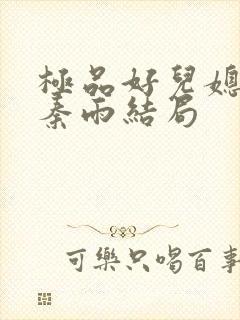 極品好兒媳
秦雨結局
可樂只喝百事